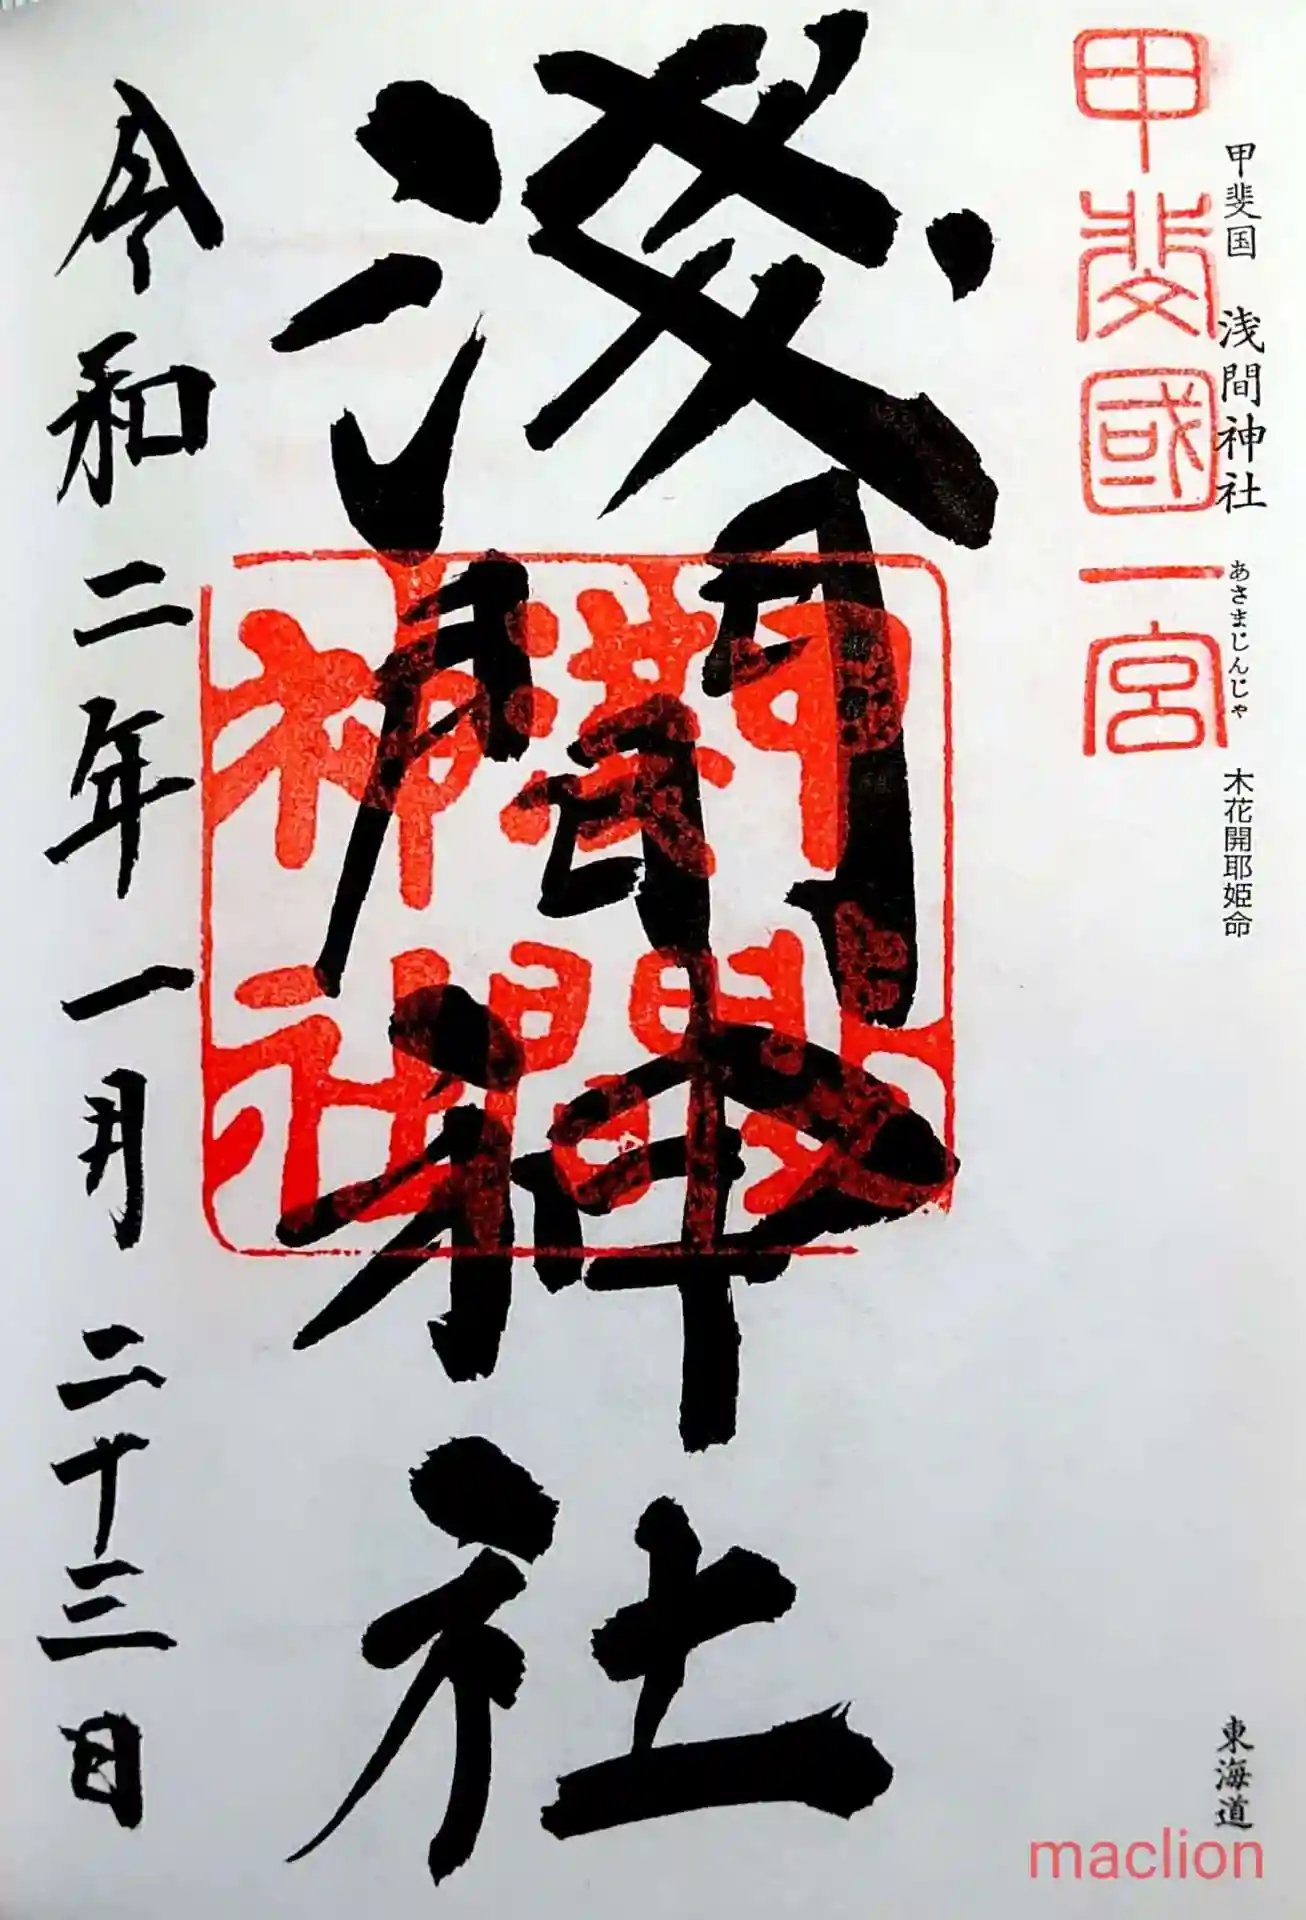 甲斐国 浅間神社 あさまじんじゃ 木花開耶姫命
東海道
甲斐國一宮
淺間神社
淺間神社
令和二年一月二十三日
maclion